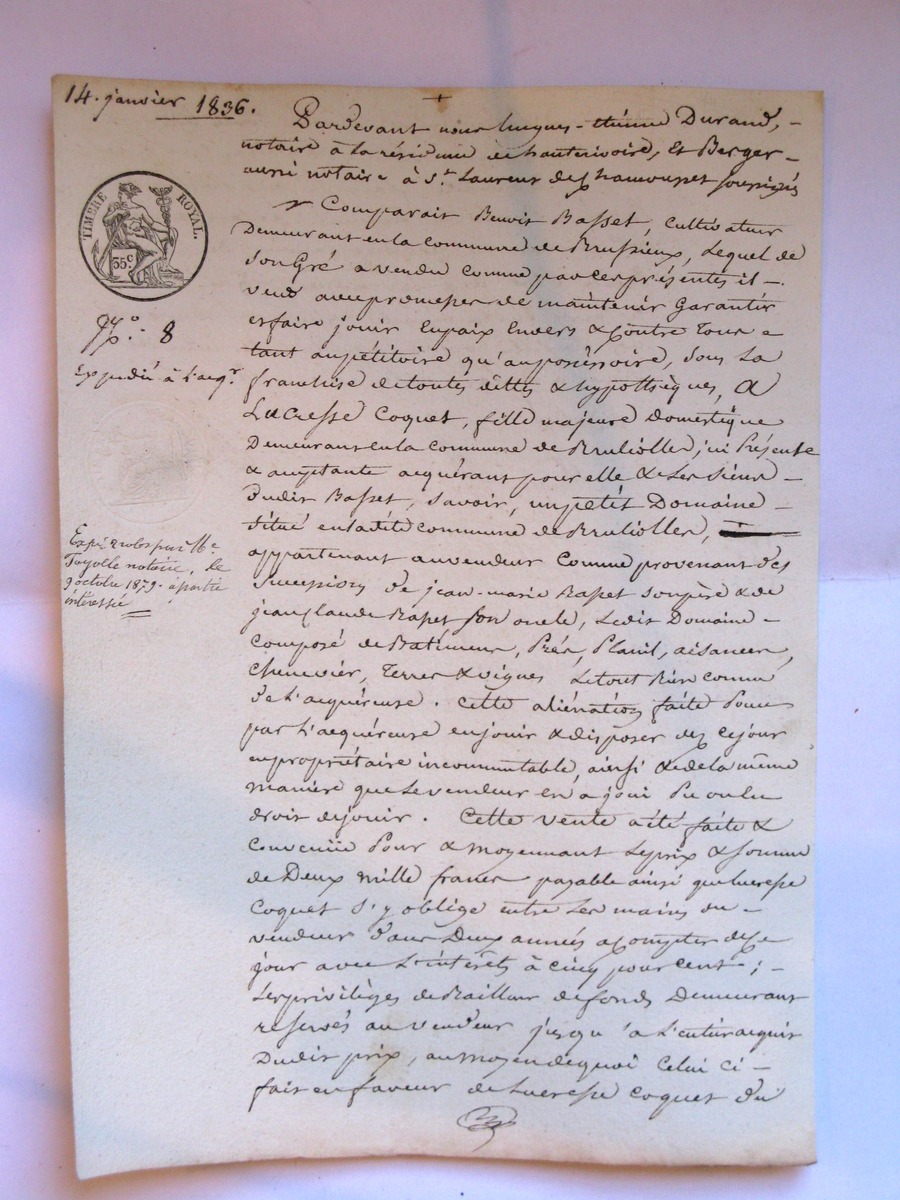 14. janvier 1836.
TIMBRE ROYAL.
35 c.
No. 8
Expédié à l'acqr.
Expé 2 roles par Me
notaire, le
9 octobre 1879. à partie
intéressée
Pardevant nous hugues-étienne Durand,
notaire à la résidence de hauterivoire, et Berger
aussi notaire à St. Laurent de Chamousset soussignés
Comparait Benoit Basset, cultivateur
Demeurant en la commune de Brussieux, Lequel de
son Gré a vendu comme par ces présentes il
vend avec promesses de maintenir Garantir
et faire jouir En paix Envers & Contre Tous
tant au pétitoire qu'au possessoire, sous La
franchise de toutes dettes & hypothèques, à
Lucresse Coquet, fille majeure domestique
Demeurant en la commune de Brulliolle, ici Présente
& acceptante acquérant pour elle & Les Siens
dudit Basset, savoir, un petit Domaine
situé en la dite commune de Brullioles,
appartenant au vendeur Comme provenant des
successions de jean-marie Basset son père & de
jean claude Basset son oncle, Ledit Domaine
composé de Batimens, Prés, Planil, aisances,
chenevier, Terres & vignes Le tout Bien connu
de L'acquéreuse. Cette aliénation faite Pour
par L'acquéreuse en jouir & disposer dez ce jour
en propriétaire incommutable, ainsi & de la même
manière que Le vendeur en a joui Ou eu Le
droit de jouir. Cette vente a été faite &
Convenue Pour & moyennant Le prix & somme
de Deux mille francs payable ainsi que Lucresse
Coquet s'y oblige entre Les mains du
vendeur dans Deux années a compter de Ce
jour avec L'intérêts à cinq pour cent;
Les privilèges de Bailleur de fonds Demeurant
reservés au vendeur jusqu'a L'entier acquit
Dudit prix, au moyen de quoi Celui ci
fait en faveur de Lucresse Coquet du